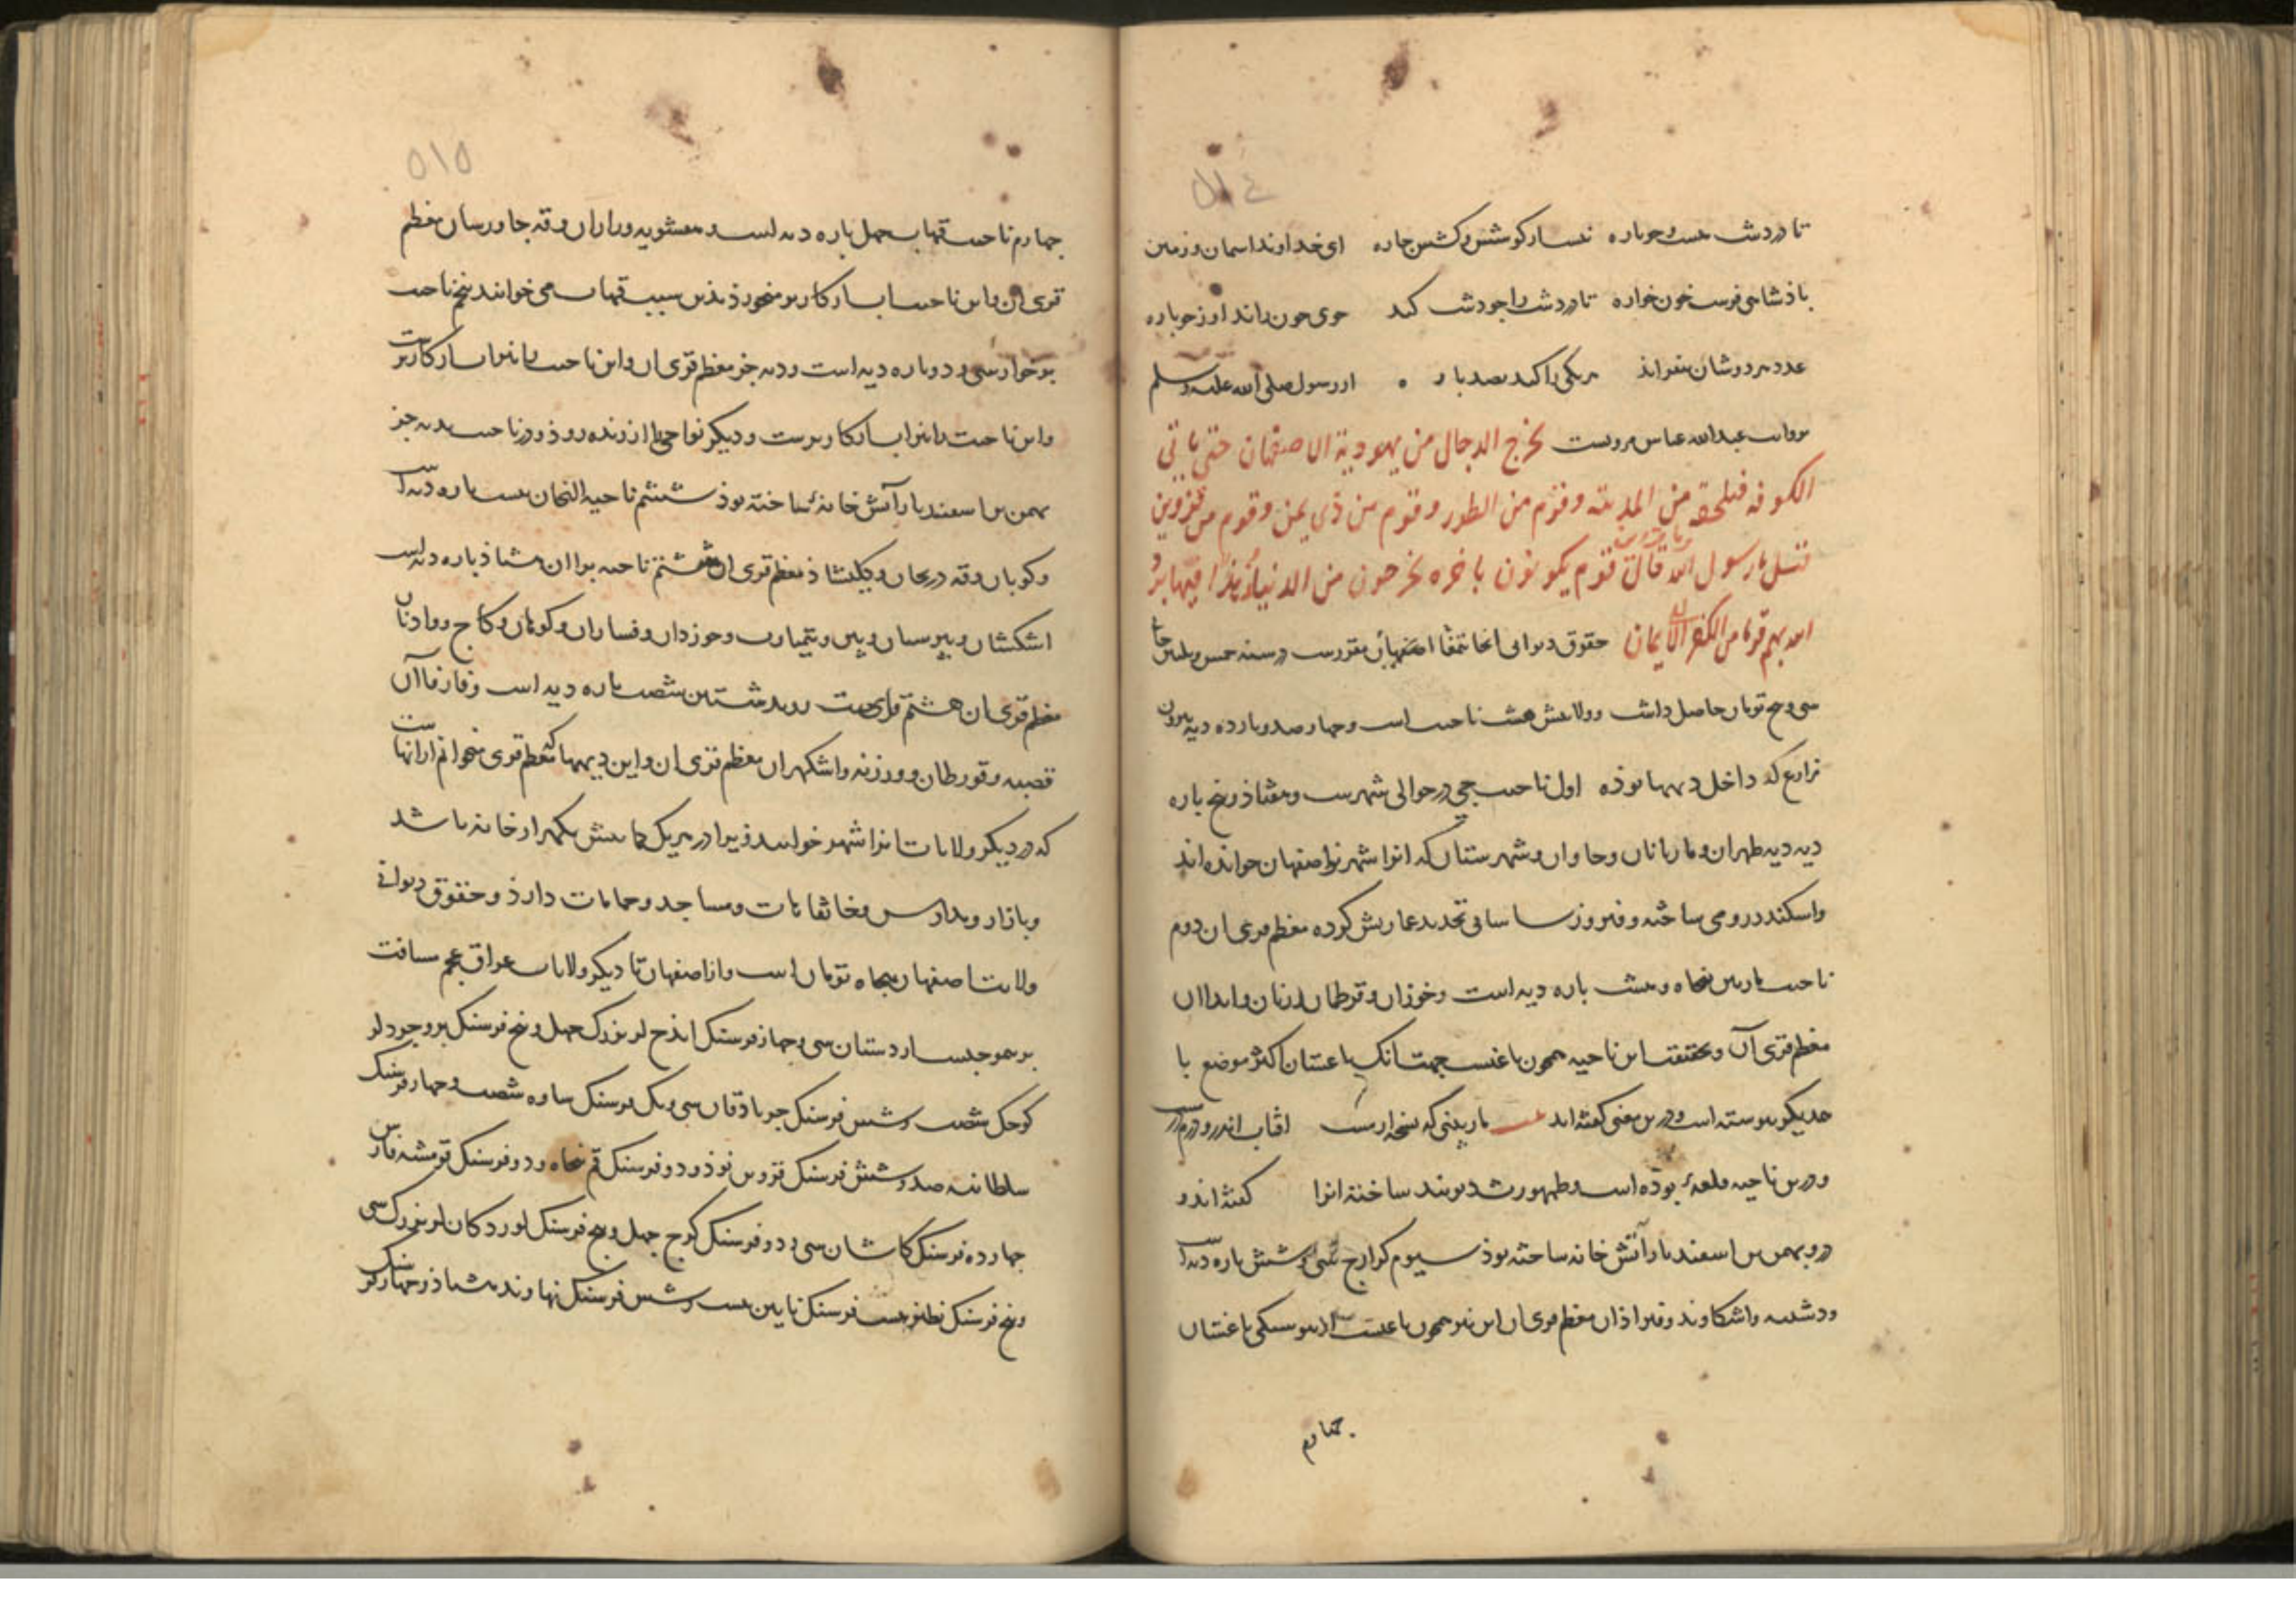 ٥١٤
تا در دشت هست و جوباره نیست از کوشش و کشش چاره ای خداوند آسمان و زمین
پادشاهی فرست خون خواره تا در دشت را چو دشت کند جوی خون راند او ز جوباره
عدد مردوشان بیفزاید هر یکی را کند بصد پاره از رسول صلی الله علیه وسلم
بروایت عبدالله عباس مرویست یخرج الدجال من یهودیة الاصفهان حتی یاتی
الکوفه فیلحقه من المدینه وقوم من الطور وقوم من ذی یمن وقوم من قزوین
قیل یا رسول الله قال قوم یکونون باخره یخرجون من الدنیا زهدا فیها یرد
الله بهم قوما من الکفر الی الایمان حقوق دیوانی انجا بتمغا اصفهان مقررست در سنه خمس و ثلثین خانی
سی و پنج تومان حاصل داشت و ولایتش هشت ناحیت است و چهارصد و پاره دیه بیرون
مزارع که داخل دیهها بوده اول ناحیت جی در حوالی شهرست و هفتاد و پنج پاره
دیه دیه طهران و ماربانان و جاوان و شهرستان که انرا شهر نو اصفهان خوانده اند
و اسکندر رومی ساخته و فیروز ساسانی تجدید عمارتش کرده معظم قری ان دوم
ناحیت ماربین پنجاه و هشت پاره دیه است و خوزان و قرطان و رنان و اندان
معظم قری آن و بحقیقت این ناحیه همچون باغیست جهت انک باغستان اکثر موضع با
همدیگر پیوسته است و درین معنی گفته اند ماربینی که نسخه ارمست افتاب اندرو درم درمست
و درین ناحیه قلعهٔ بوده است و طهمورث دیوبند ساخته انرا گفته اند و
درو بهمن بن اسفندیار آتش خانه ساخته بوذ سیوم کرارج سی و شش پاره دیه است
و دشته و اشکاوند و فیزاذان معظم قری ان این نیز همچون باغیست از پیوستگی باغستان
چهارم
٥١٥
چهارم ناحیت قهاب چهل پاره دیه است و هفشویه و راران و قه جاورسان معظم
قری ان و این ناحیت اب از کاریز میخورذ بذین سبب قهاب می خوانند پنجم ناحیت
برخوار سی و دو پاره دیه است و دیه جز معظم قری ان و این ناحیت را نیز اب از کاریزست
و این ناحیت را نیز اب از کاریزست و دیگر نواحی را از زنده روذ و در ناحیت بدیه جز
بهمن بن اسفندیار آتش خانهٔ ساخته بوذ ششم ناحیه النجان بیست پاره دیه است
و کوبان و قه دریجان و کلیشاذ معظم قری ان هفتم ناحیه براان هشتاذ پاره دیه است
اشکشان و بوزان و فساران و کاج و
معظم قری ان هشتم ناحیت رویدشتین شصت پاره دیه است و فارفاآن
قصبه و قورطان و ورزنه و اشکهران معظم قری ان و این دیهها که معظم قری میخوانم ازانهاست
که در دیگر ولایات انرا شهر خوانند زیرا در هر یک کمابیش یکهزار خانه باشد
و بازار و مدارس و خانقاهات و مساجد و حمامات دارذ و حقوق دیوانی
ولایت اصفهان پنجاه تومان است و از اصفهان تا دیگر ولایات عراق عجم مسافت
بر موجبست اردستان سی و چهار فرسنک ایذج لر بزرگ چهل و پنج فرسنک بروجرد لر
کوچک شصت و شش فرسنک جرباذقان سی و یک فرسنک ساوه شصت و چهار فرسنک
سلطانیه صد و شش فرسنک قزوین نوذ و دو فرسنک قم پنجاه و دو فرسنک قومشه فارس
چهارده فرسنک کاشان سی و دو فرسنک کرج چهل و پنج فرسنک لوردکان لر بزرگ سی
و پنج فرسنک نطنز بیست فرسنک نایین بیست و شش فرسنک نهاوند هشتاذ و چهار فرسنک